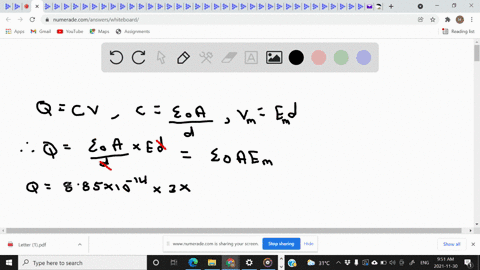 numerade.com/answers/whiteboard/
Apps
Gmail
YouTube
Maps
Assignments
Reading list
Q = CV , C = ε0A/d , Vm = Emd
∴ Q = ε0A/d × Ed = ε0AEm
Q = 8.85×10⁻¹² × 2×
Letter (1).pdf
www.numerade.com is sharing your screen.
Stop sharing
Hide
Show all
Type here to search
31°C
ENG
9:53 AM
2021-11-30